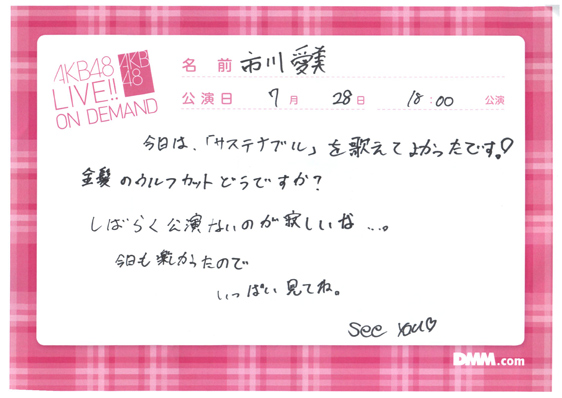 AKB48
LIVE!!
ON DEMAND
AKB
48
名前 市川愛美
公演日 7月 28日 18:00 公演
今日は、「サステナブル」を歌えてよかったです。♡
金髪のウルフカットどうですか?
しばらく公演ないのが寂しいな...。
今日も楽しかったので
いっぱい見てね。
See you♡
DMM.com